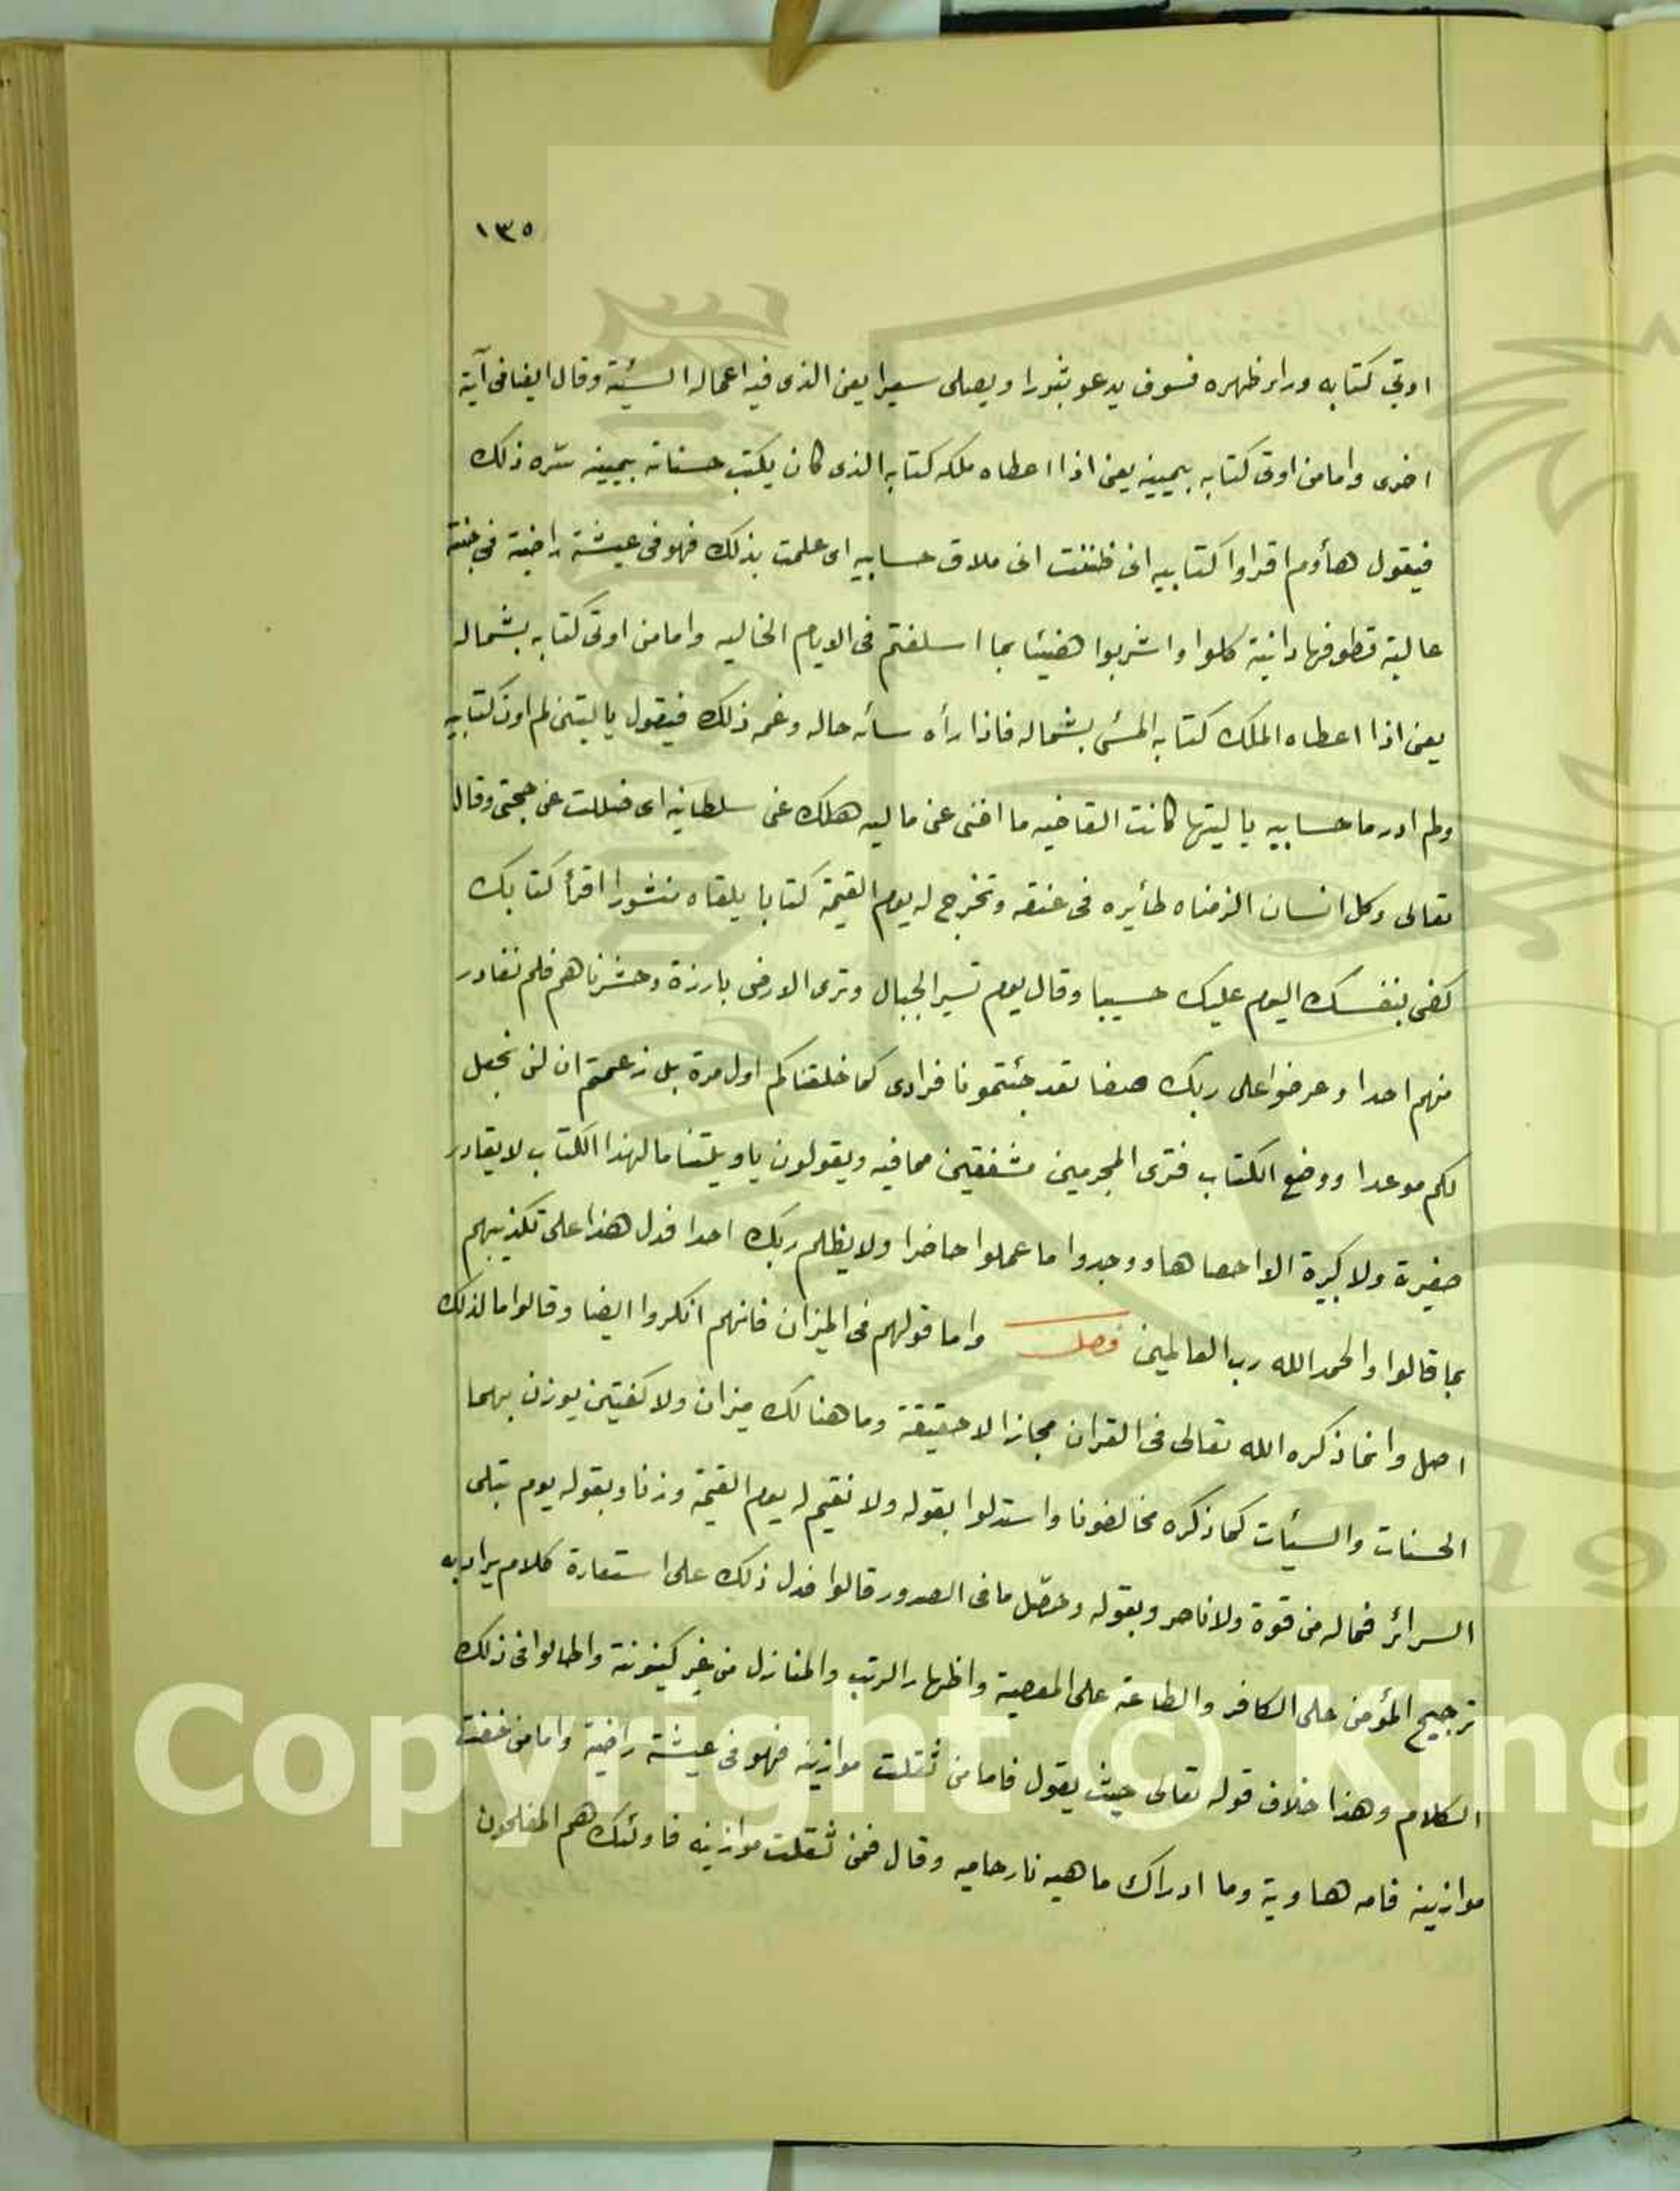 ١٣٥
اوتي كتابه وراء ظهره فسوف يدعو ثبورا ويصلى سعيرا يعنى الذى فيه اعماله السيئة وقال ايضا فى آية
اخرى واما من اوتى كتابه بيمينه يعنى اذا اعطاه ملكه كتابه الذى كان يكتب حسناته بيمينه سره ذلك
فيقول هاؤم اقراوا كتابيه انى ظننت انى ملاق حسابيه اى علمت بذلك فهو فى عيشة راضية فى جنة
عالية قطوفها دانية كلوا واشربوا هنيئا بما اسلفتم فى الايام الخاليه واما من اوتى كتابه بشماله
يعنى اذا اعطاه الملك كتابه المسئ بشماله فاذا رأه سائه حاله وغمه ذلك فيقول ياليتنى لم اوت كتابيه
ولم ادر ما حسابيه ياليتها كانت القاضيه ما اغنى عنى ماليه هلك عنى سلطانيه اى ضللت عن حجتى وقال
تعالى وكل انسان الزمناه طأيره فى عنقه ونخرج له يوم القيمة كتابا يلقاه منشورا اقرأ كتابك
كفى بنفسك اليوم عليك حسيبا وقال يوم تسير الجبال وترى الارض بارزة وحشرناهم فلم نغادر
منهم احدا وعرضوا على ربك صفا لقد جئتمونا فرادى كما خلقناكم اول مرة بل زعمتم ان لن نجعل
لكم موعدا ووضع الكتاب فترى المجرمين مشفقين مما فيه ويقولون ياويلتنا مالهذا الكتاب لايغادر
صغيرة ولا كبيرة الا احصاها ووجدوا ما عملوا حاضرا ولا يظلم ربك احدا فدل هذا على تكذيبهم
بما قالوا والحمد الله رب العالمين فصل واما قولهم فى الميزان فانهم انكروا ايضا وقالوا مالذلك
اصل وانما ذكره الله تعالى فى القران مجازا لا حقيقة وما هنالك ميزان ولا كفتين يوزن بهما
الحسنات والسيئات كما ذكره مخالفونا واستدلوا بقوله ولا نقيم له يوم القيمة وزنا وبقوله يوم تبلى
السرائر فماله من قوة ولا ناصر وبقوله وحصّل ما فى الصدور قالوا فدل ذلك على استعارة كلام يراد به
ترجيح المؤمن على الكافر والطاعة على المعصية واظهار الرتب والمنازل من غير كينونة واطالوا فى ذلك
الكلام وهذا خلاف قوله تعالى حيث يقول فاما من ثقلت موازينه فهو فى عيشة راضية واما من خفت
موازينه فامه هاوية وما ادراك ماهيه نار حاميه وقال فمن ثقلت موازينه فاوئلك هم المفلحون
Copyright © King